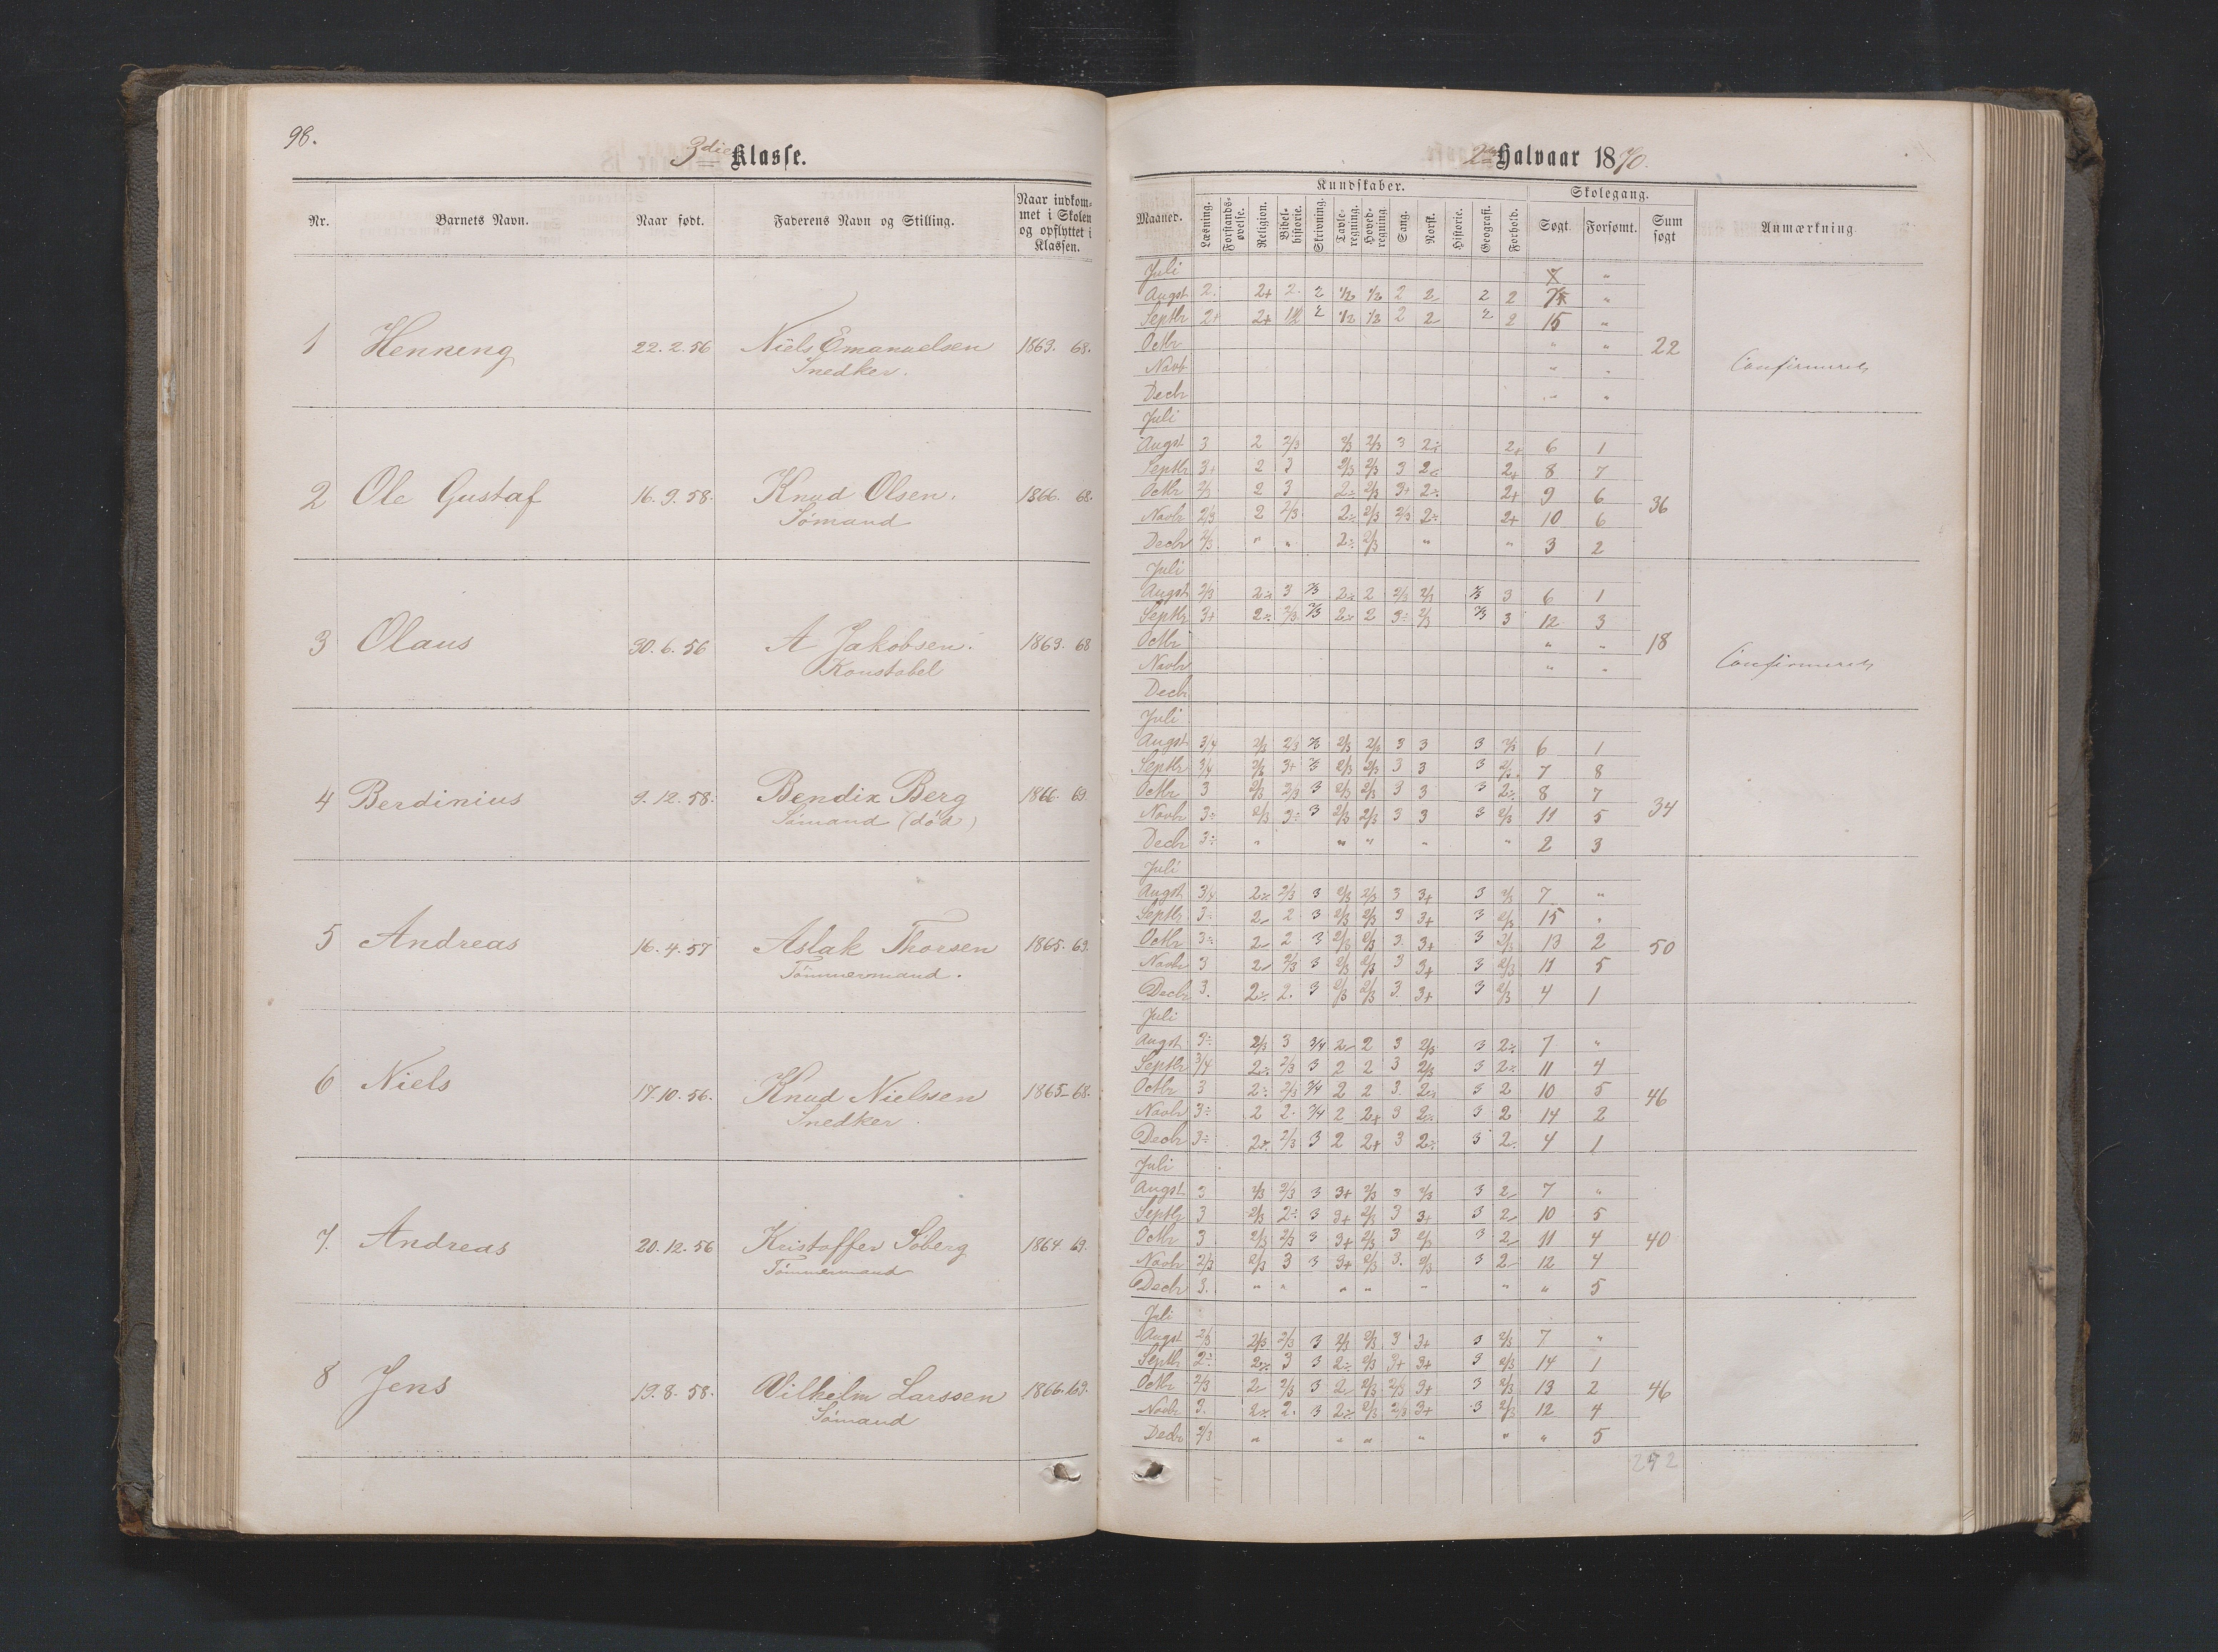 98.
3die Klasse.
Nr.
Barnets Navn.
Naar født.
Faderens Navn og Stilling.
Naar indkommet i Skolen og opflyttet i Klassen.
1 Henneng 22.2.56 Niels Emanuelsen 1863. 68.
Snedker.
2 Ole Gustaf 16.9.58. Knud Olsen. 1866. 68.
Sömand
3 Olaus 30.6.56 A Jakobsen. 1863. 68
Konstabel
4 Berdinius 9.12.58. Bendix Berg 1866. 69
Sömand (död)
5 Andreas 16.4.57 Aslak Thorsen 1865. 69.
Tömmermand.
6 Niels 17.10.56. Knud Nielsen 1865-68.
Snedker.
7. Andreas 20.12.56 Kristoffer Soberg 1864. 69.
Tömmermand
8 Jens 19.8.58. Vilhelm Larssen 1866. 69.
Sömand
2det Halvaar 1870.
Kundskaber.
Skolegang.
Maaned.
Læsning.
Forstandsøvelse.
Religion.
Bibelhistorie.
Skrivning.
Tavleregning.
Hovedregning.
Sang.
Norsk.
Historie.
Geografi.
Forhold.
Søgt.
Forsømt.
Sum søgt
Anmærkning
Juli "
Augst 2. 2+ 2. 2 1/2 1/2 2 2 2 2 "
Septbr 2+ 2+ 1/2 2 1/2 1/2 2 2 2 2 15 "
Octbr " " 22
Novb " " Confirmeret
Decbr " "
Juli
Augst 3 2 2/3 2/3 2/3 3 2÷ 2+ 6 1
Septbr 3+ 2 3 2/3 2/3 3 2÷ 2+ 8 7
Octbr 2/3 2 3 2÷ 2/3 3+ 2÷ 2+ 9 6 36
Novbr 2/3 2 2/3 2÷ 2/3 2/3 2÷ 2+ 10 6
Decbr 2/3 " " 2÷ 2/3 " " 3 2
Juli
Augst 2/3 2÷ 3 2/3 2÷ 2 2/3 2/3 2/3 3 6 1
Septbr 3+ 2÷ 2/3 2/3 2÷ 2 3÷ 2/3 2/3 3 12 3
Octbr " " 18
Novbr " " Confirmeret
Decbr
Juli
Augst 3/4 2/3 2/3 2/3 2/3 2/3 3 3 3 2/3 6 1
Septbr 3/4 2/3 3+ 2/3 2/3 2/3 3 3 3 2/3 7 8
Octbr 3 2/3 2/3 3 2/3 2/3 3 3 3 2÷ 8 7 34
Novbr 3÷ 2/3 3÷ 3 2/3 2/3 3 3 3 2/3 11 5
Decbr 3÷ " " " " " 2 3
Juli
Augst 3/4 2÷ 2/3 3 2/3 2/3 3 3+ 3 2/3 7 "
Septbr 3÷ 2- 2 3 2/3 2/3 3 3+ 3 2/3 15 "
Octbr 3÷ 2- 2 3 2/3 2/3 3. 3+ 3 2/3 13 2 50
Novbr 3 2- 2/3 3 2/3 2/3 3 3+ 3 2/3 11 5
Decbr 3. 2÷ 2. 3 2/3 2/3 3. 3+ 3 2/3 4 1
Juli
Augst 3÷ 2/3 3 3/4 2- 2 3 2/3 3 2÷ 7 "
Septbr 3/4 2÷ 2/3 3 2 2 3 2/3 3 2÷ 11 4
Octbr 3 2÷ 2/3 3/4 2 2 3. 2÷ 3 2 10 5 46
Novbr 3÷ 2 2. 3/4 2 2+ 3 2÷ 3 2 14 2
Decbr 3÷ 2÷ 2/3 3 2 2+ 3 2÷ 3 2. 4 1
Juli
Augst 3 2/3 2/3 3 3+ 2/3 3 2/3 3 2- 7 "
Septbr 3 2/3 2÷ 3 3+ 2/3 3 3+ 3 2- 10 5
Octbr 3 2/3 2/3 3 3+ 2/3 3 2/3 3 2- 11 4 40
Novbr 2/3 2/3 3 3 3+ 2/3 3. 2/3 3 2- 12 4
Decbr 3. " " " " " " " 5
Juli
Augst 2/3 2/3 2/3 3 2/3 2/3 3 3+ 3 2/3 7 "
Septbr 2÷ 2÷ 3 3 2÷ 2/3 3+ 3+ 3 2/3 14 1
Octbr 2/3 2- 2/3 3 2- 2/3 2/3 3+ 3 2/3 13 2 46
Novbr 3. 2÷ 2. 3 2÷ 2/3 2/3 3+ 3 2/3 12 4
Decbr 2/3 " " " " " " 5